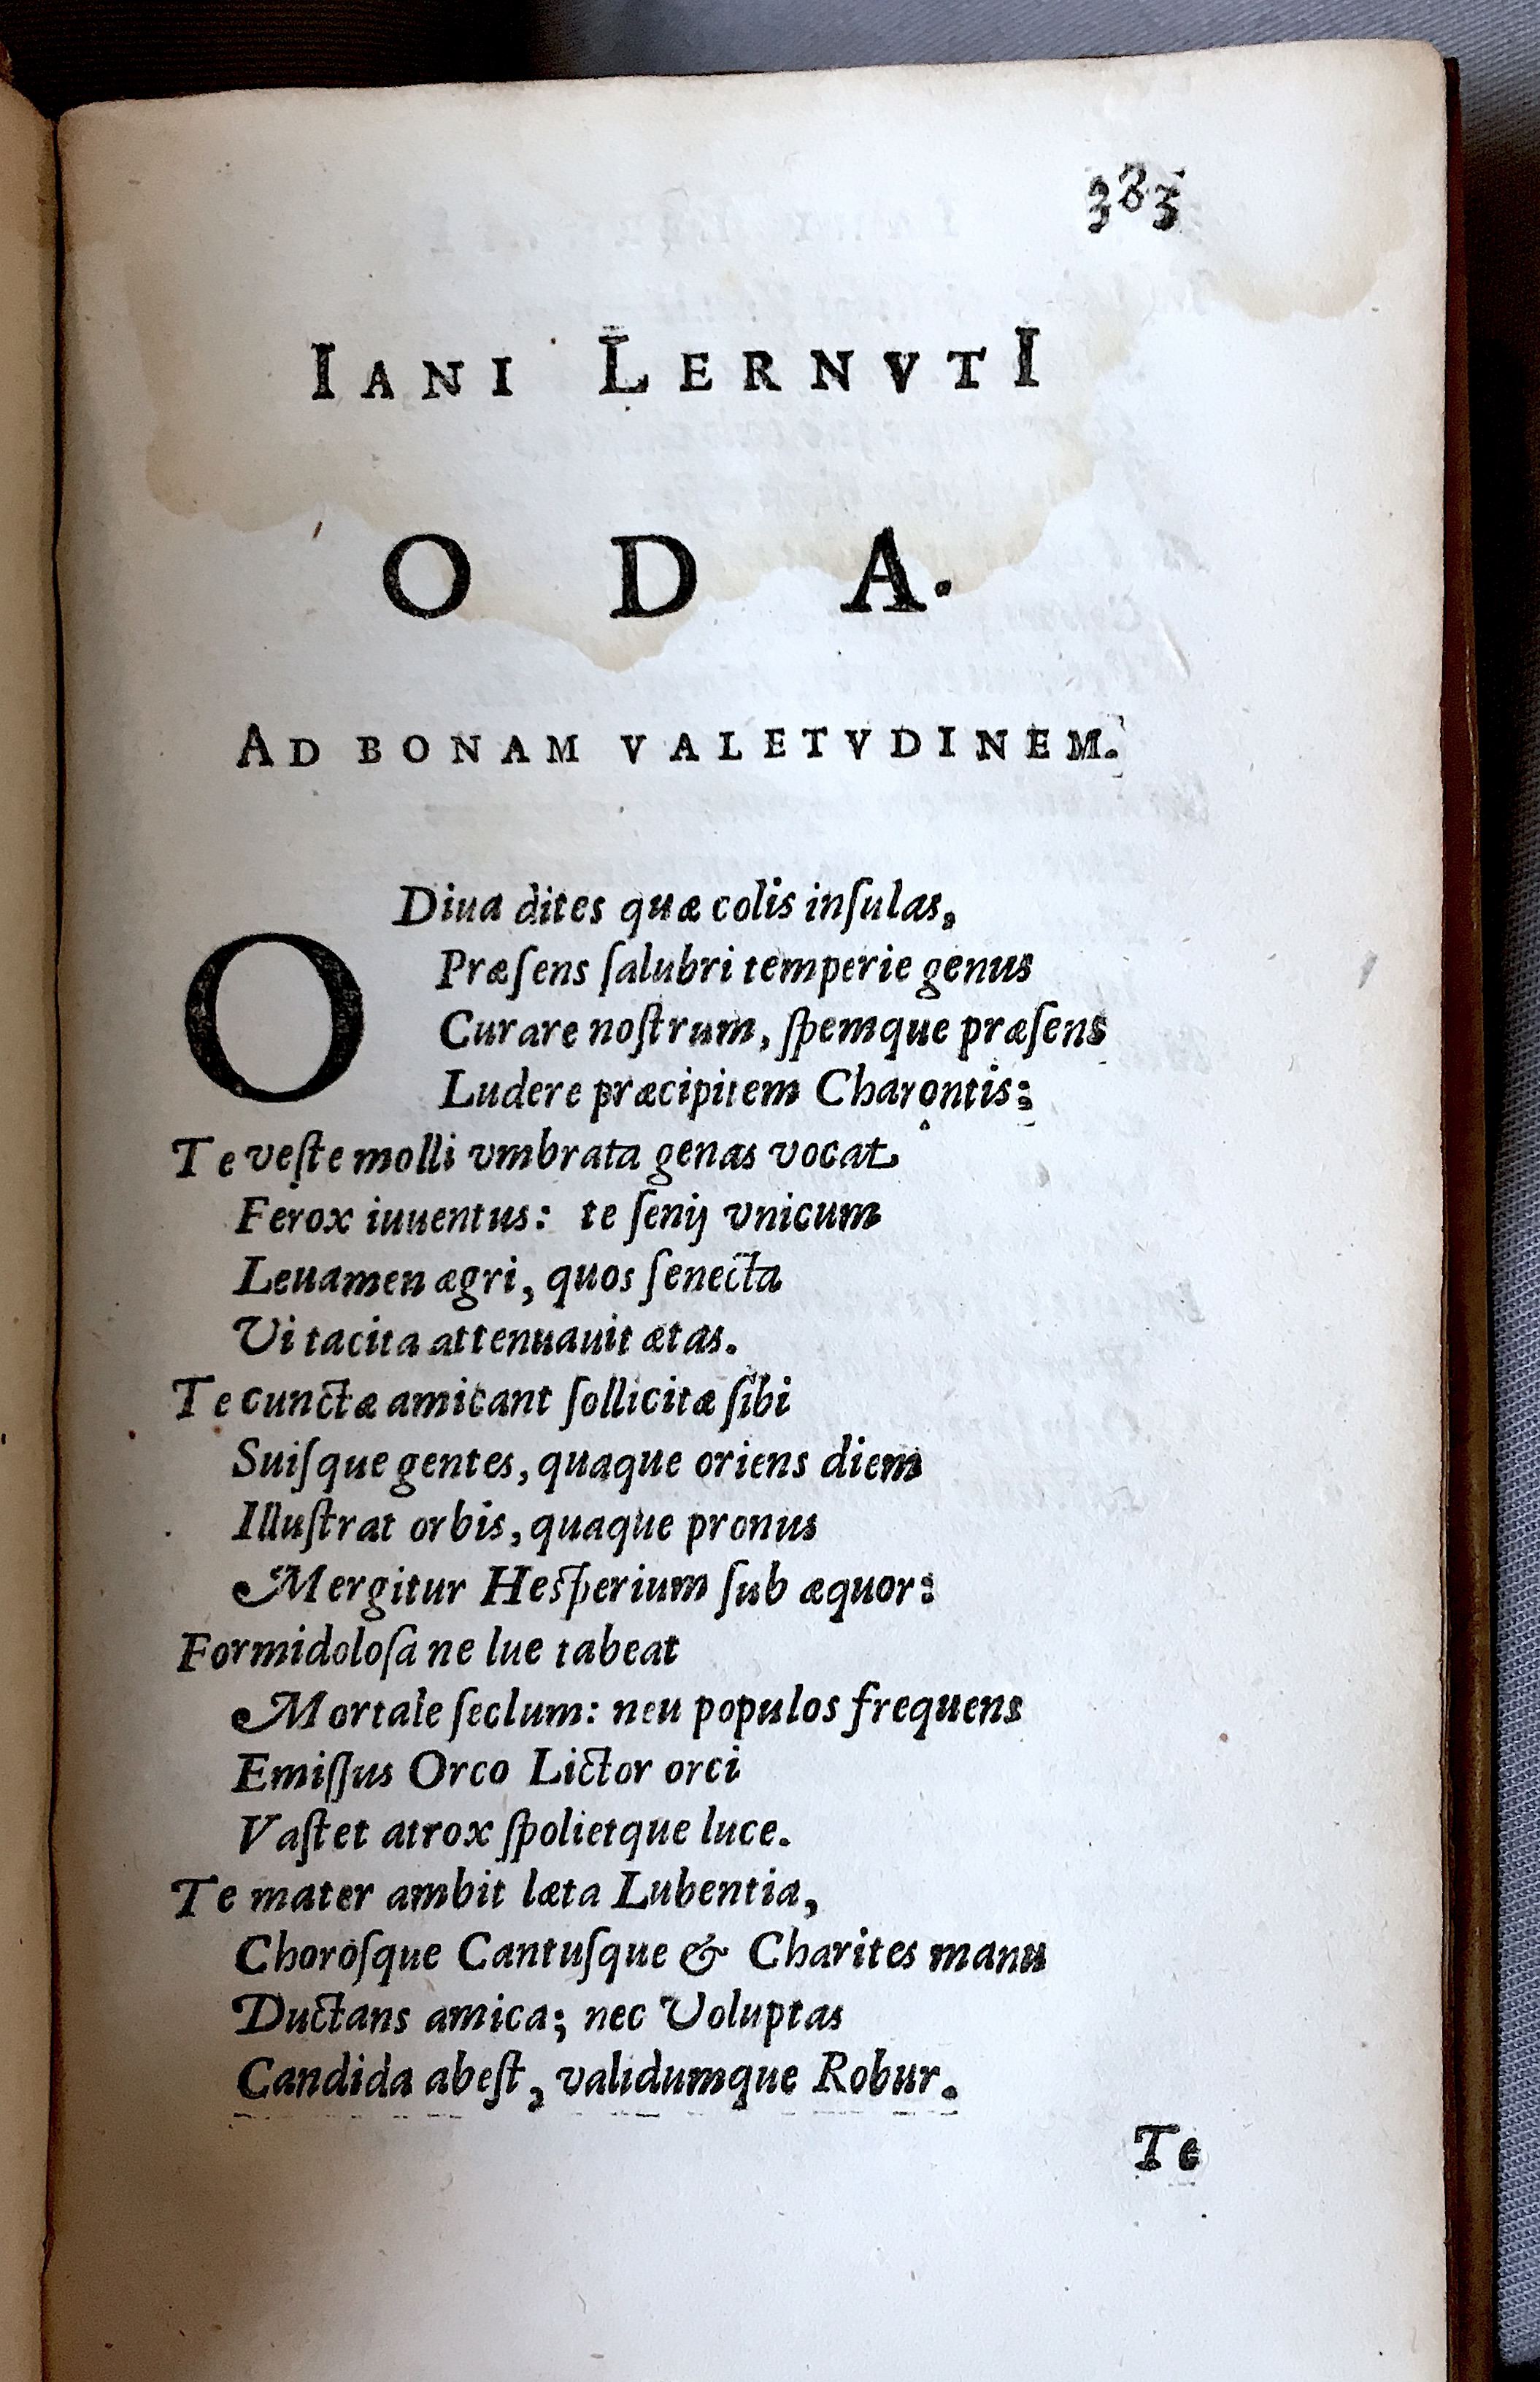 383
IANI LERNVTI
ODA.
AD BONAM VALETVDINEM.
O Diua dites quæ colis inſulas,
Præſens ſalubri temperie genus
Curare noſtrum, ſpemque præſens
Ludere præcipitem Charontis:
Te veſte molli vmbrata genas vocat
Ferox iuuentus: te ſenij vnicum
Leuamen ægri, quos ſenecta
Vi tacita attenuauit ætas.
Te cunctæ amicant ſollicitæ ſibi
Suiſque gentes, quaque oriens diem
Illuſtrat orbis, quaque pronus
Mergitur Heſperium ſub æquor:
Formidoloſa ne lue tabeat
Mortale ſeclum: neu populos frequens
Emiſſus Orco Lictor orci
Vaſtet atrox ſpolietque luce.
Te mater ambit læta Lubentia,
Choroſque Cantuſque & Charites manu
Ductans amica; nec Voluptas
Candida abeſt, validumque Robur.
Te